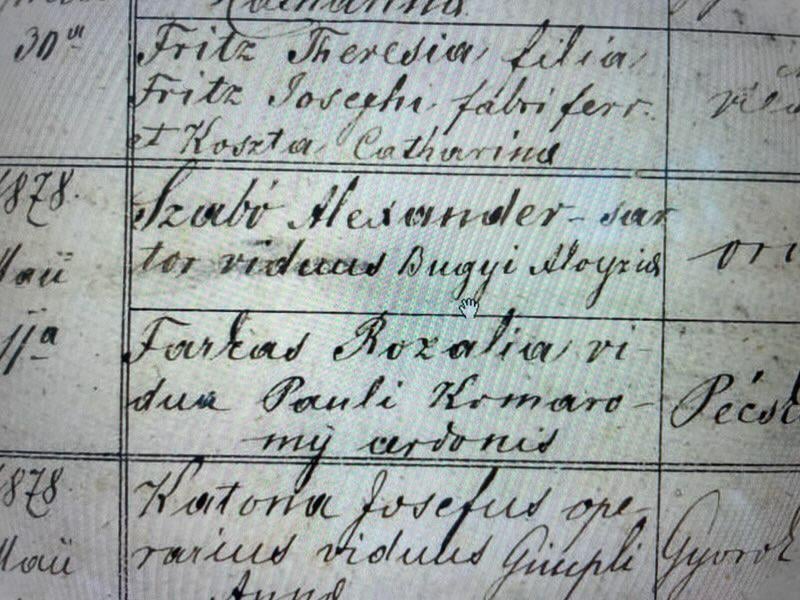 30
Fritz Theresia filia
Fritz Josephi fabri ferr.
et Koszta Catharina
1878.
Szabó Alexander - sar
tor viduus Bugyi Aloyzia
ori
11a
Farkas Rozalia vi-
dua Pauli Komaro-
my
Pécsk
1878
Katona Josefus ope-
rarius viduus Gimpli
Gyorok
Anna